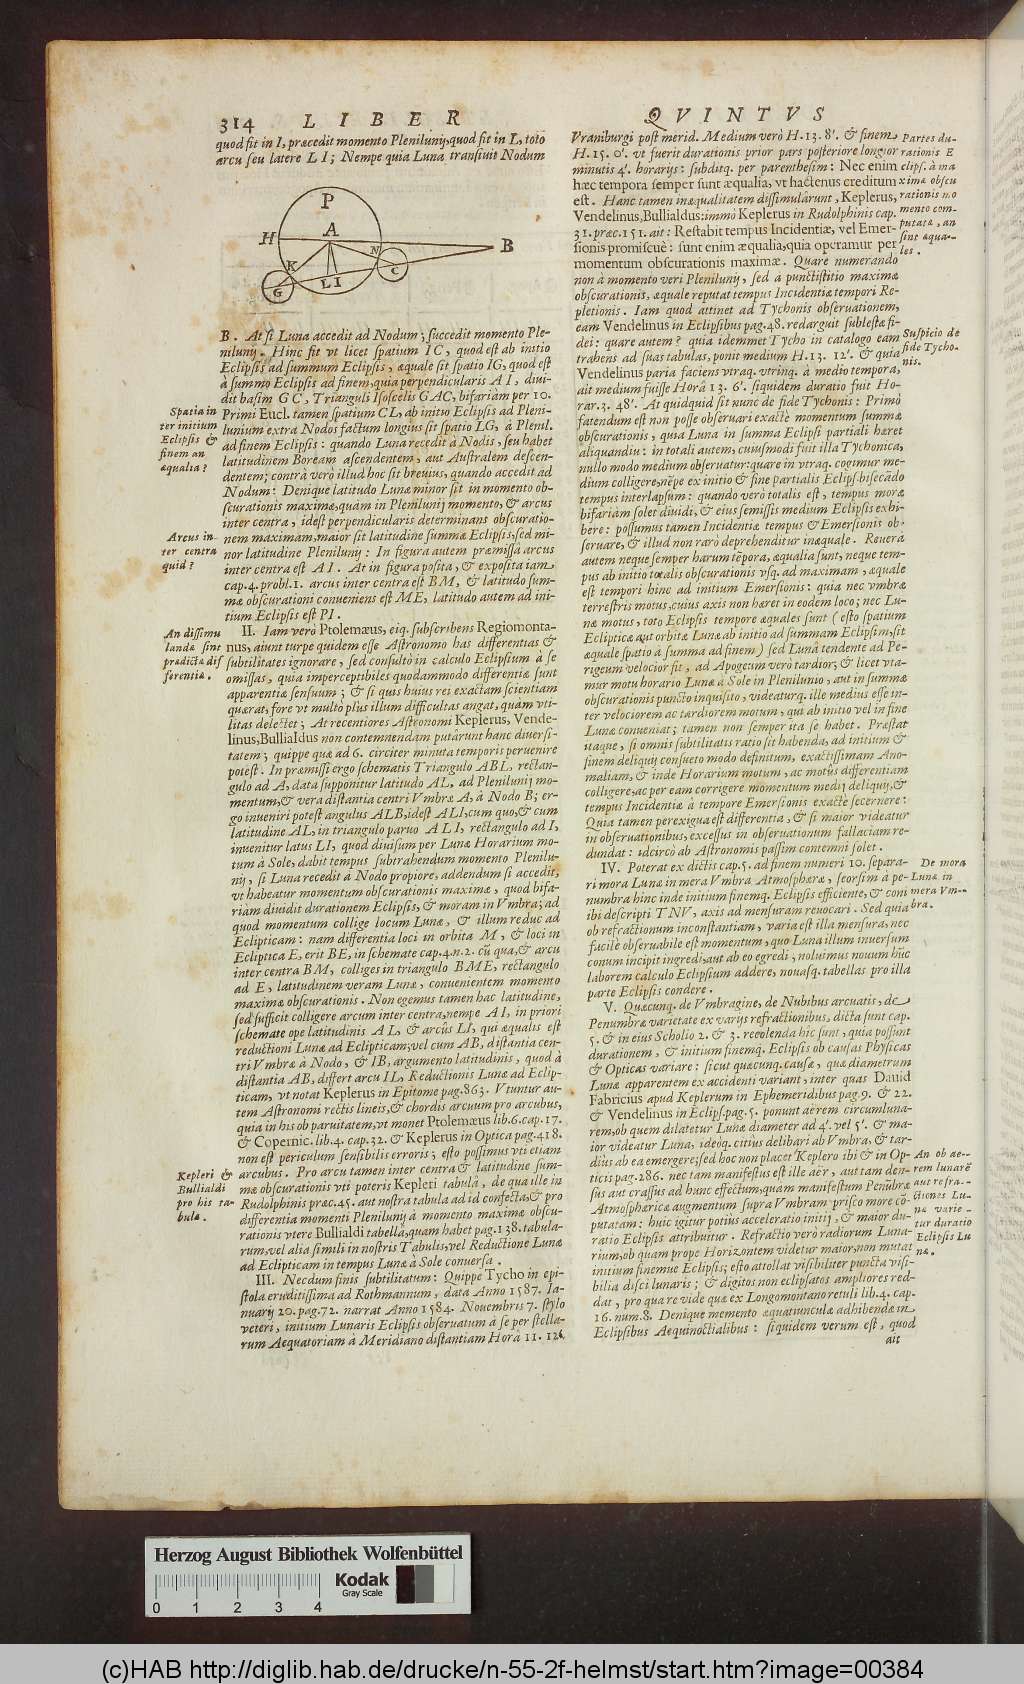 314 LIBER
quod fit in I, præcedit momento Plenilunij, quod fit in L, toto
arcu seu latere LI; Nempe quia Luna transiuit Nodum
P
H A N B
K C
G L I
B. At si Luna accedit ad Nodum; succedit momento Ple-
nilunij. Hinc fit vt licet spatium IC, quod est ab initio
Eclipsis ad summum Eclipsis, æquale sit spatio IG, quod est
à summo Eclipsis ad finem, quia perpendicularis AI, diui-
dit basim GC, Trianguli Isoscelis GAC, bifariam per 10.
Primi Eucl. tamen spatium CL, ab initio Eclipsis ad Pleni-
lunium extra Nodos factum longius sit spatio LG, à Plenil.
ad finem Eclipsis: quando Luna recedit à Nodis, seu habet
latitudinem Boream ascendentem, aut Australem descen-
dentem; contrà verò illud hoc sit breuius, quando accedit ad
Nodum: Denique latitudo Lunæ minor sit in momento ob-
scurationis maximæ, quàm in Plenilunij momento, & arcus
inter centra, idest perpendicularis determinans obscuratio-
nem maximam, maior sit latitudine summæ Eclipsis, sed mi-
nor latitudine Plenilunij: In figura autem præmissa arcus
inter centra est AI. At in figura posita, & exposita iam
cap. 4. probl. 1. arcus inter centra est BM, & latitudo sum-
mæ obscurationi conueniens est ME, latitudo autem ad ini-
tium Eclipsis est PI.
Spatia in
ter initium
Eclipsis &
finem an
æqualia?
Arcus in-
ter centra
quid?
II. Iam verò Ptolemæus, eiq. subscribens Regiomonta-
nus, aiunt turpe quidem esse Astronomo has differentias &
subtilitates ignorare, sed consultò in calculo Eclipsium à se
omissas, quia imperceptibiles quodammodo differentiæ sunt
apparentiæ sensuum; & si quis huius rei exactam scientiam
quærat, fore vt multò plus illum difficultas angat, quàm vti-
litas delectet; At recentiores Astronomi Keplerus, Vende-
linus, Bullialdus non contemnendam putârunt hanc diuersi-
tatem; quippe quæ ad 6. circiter minuta temporis peruenire
potest. In præmissi ergo schematis Triangulo ABL, rectan-
gulo ad A, data supponitur latitudo AL, ad Plenilunij mo-
mentum, & vera distantia centri Vmbræ A, à Nodo B; er-
go inueniri potest angulus ALB, idest ALI, cum quo, & cum
latitudine AL, in triangulo paruo ALI, rectangulo ad I,
inuenitur latus LI, quod diuisum per Lunæ Horarium mo-
tum à Sole, dabit tempus subtrahendum momento Plenilu-
nij, si Luna recedit à Nodo propiore, addendum si accedit,
vt habeatur momentum obscurationis maximæ, quod bifa-
riam diuidit durationem Eclipsis, & moram in Vmbra; ad
quod momentum collige locum Lunæ, & illum reduc ad
Eclipticam: nam differentia loci in orbita M, & loci in
Ecliptica E, erit BE, in schemate cap. 4. n. 2. cū qua, & arcu
inter centra BM, colliges in triangulo BME, rectangulo
ad E, latitudinem veram Lunæ, conuenientem momento
maximæ obscurationis. Non egemus tamen hac latitudine,
sed sufficit colligere arcum inter centra, nempe AI, in priori
schemate ope latitudinis AL, & arcûs LI, qui æqualis est
reductioni Lunæ ad Eclipticam; vel cum AB, distantia cen-
tri Vmbræ à Nodo, & IB, argumento latitudinis, quod à
distantia AB, differt arcu IL, Reductionis Lunæ ad Eclip-
ticam, vt notat Keplerus in Epitome pag. 863. Vtuntur au-
tem Astronomi rectis lineis, & chordis arcuum pro arcubus,
quia in his ob paruitatem, vt monet Ptolemæus lib. 6. cap. 17.
& Copernic. lib. 4. cap. 32. & Keplerus in Optica pag. 418.
non est periculum sensibilis erroris; esto possimus vti etiam
arcubus. Pro arcu tamen inter centra & latitudine sum-
mæ obscurationis vti poteris Kepleri tabulâ, de qua ille in
Rudolphinis præc. 45. aut nostra tabula ad id confecta, & pro
differentia momenti Plenilunij à momento maximæ obscu-
rationis vtere Bullialdi tabella, quam habet pag. 138. tabula-
rum, vel alia simili in nostris Tabulis, vel Reductione Lunæ
ad Eclipticam in tempus Lunæ à Sole conuersa.
An dissimu
landæ sint
prædictæ dif
ferentiæ.
Kepleri &
Bullialdi
pro his ta-
bulæ.
III. Necdum finis subtilitatum: Quippe Tycho in epi-
stola eruditissima ad Rothmannum, data Anno 1587. Ia-
nuarij 20. pag. 72. narrat Anno 1584. Nouembris 7. stylo
veteri, initium Lunaris Eclipsis obseruatum à se per stella-
rum Aequatoriam à Meridiano distantiam Horâ 11. 12'.
QVINTVS
Vraniburgi post merid. Medium verò H. 13. 8'. & finem
H. 15. 0'. vt fuerit durationis prior pars posteriore longior
minutis 4'. horarijs: subditq. per parenthesim: Nec enim
hæc tempora semper sunt æqualia, vt hactenus creditum
est. Hanc tamen inæqualitatem dissimulârunt, Keplerus,
Vendelinus, Bullialdus: immò Keplerus in Rudolphinis cap.
31. præc. 151. ait: Restabit tempus Incidentiæ, vel Emer-
sionis promiscuè: sunt enim æqualia, quia operamur per
momentum obscurationis maximæ. Quare numerando
non à momento veri Plenilunij, sed a punctistitio maximæ
obscurationis, æquale reputat tempus Incidentiæ tempori Re-
pletionis. Iam quod attinet ad Tychonis obseruationem,
eam Vendelinus in Eclipsibus pag. 48. redarguit sublestæ fi-
dei: quare autem? quia idemmet Tycho in catalogo eam
trahens ad suas tabulas, ponit medium H. 13. 12'. & quia
Vendelinus paria faciens vtraq. vtrinq. à medio tempora,
ait medium fuisse Horâ 13. 6'. siquidem duratio fuit Ho-
rar. 3. 48'. At quidquid sit nunc de fide Tychonis: Primò
fatendum est non posse obseruari exactè momentum summæ
obscurationis, quia Luna in summa Eclipsi partiali hæret
aliquandiu: in totali autem, cuiusmodi fuit illa Tychonica,
nullo modo medium obseruatur: quare in vtraq. cogimur me-
dium colligere, nēpe ex initio & fine partialis Eclips. bisecādo
tempus interlapsum: quando verò totalis est, tempus moræ
bifariàm solet diuidi, & eius semissis medium Eclipsis exhi-
bere: possumus tamen Incidentiæ tempus & Emersionis ob-
seruare, & illud non rarò deprehenditur inæquale. Reuerâ
autem neque semper harum tēpora, æqualia sunt, neque tem-
pus ab initio totalis obscurationis vsq. ad maximam, æquale
est tempori hinc ad initium Emersionis: quia nec vmbræ
terrestris motus, cuius axis non hæret in eodem loco; nec Lu-
næ motus, toto Eclipsis tempore æquales sunt (esto spatium
Eclipticæ aut orbitæ Lunæ ab initio ad summam Eclipsim, sit
æquale spatio à summa ad finem) sed Luna tendente ad Pe-
rigeum velocior fit, ad Apogeum verò tardior; & licet vta-
mur motu horario Lunæ à Sole in Plenilunio, aut in summæ
obscurationis puncto inquisito, videaturq. ille medius esse in-
ter velociorem ac tardiorem motum, qui ab initio vel in fine
Lunæ conueniat; tamen non semper ita se habet. Præstat
itaque, si omnis subtilitatis ratio sit habenda, ad initium &
finem deliquij consueto modo definitum, exactissimam Ano-
maliam, & inde Horarium motum, ac motûs differentiam
colligere, ac per eam corrigere momentum medij deliquij, &
tempus Incidentiæ à tempore Emersionis exactè secernere:
Quia tamen perexigua est differentia, & si maior videatur
in obseruationibus, excessus in obseruationum fallaciam re-
dundat: idcircò ab Astronomis passim contemni solet.
Partes du-
rationis E
clips. à ma
xima obscu
rationis mo
mento com-
putatæ, an
sint æqua-
les.
Suspicio de
fide Tycho-
nis.
IV. Poterat ex dictis cap. 5. ad finem numeri 10. separa-
ri mora Lunæ in mera Vmbra Atmosphæræ, seorsim à pe-
numbra hinc inde initium finemq. Eclipsis efficiente, & coni
ibi descripti TNV, axis ad mensuram reuocari. Sed quia
ob refractionum inconstantiam, varia est illa mensura, nec
facilè obseruabile est momentum, quo Luna illum inuersum
conum incipit ingredi, aut ab eo egredi, noluimus nouum huc
laborem calculo Eclipsium addere, nouasq. tabellas pro illa
parte Eclipsis condere.
De mora
Lunæ in
mera Vm-
bra.
V. Quæcunq. de Vmbragine, de Nubibus arcuatis, de
Penumbræ varietate ex varijs refractionibus, dicta sunt cap.
5. & in eius Scholio 2. & 3. reuolenda hic sunt, quia possunt
durationem, & initium finemq. Eclipsis ob causas Physicas
& Opticas variare: sicut quæcunq. causæ, quæ diametrum
Lunæ apparentem ex accidenti variant, inter quas Dauid
Fabricius apud Keplerum in Ephemeridibus pag. 9. & 22.
& Vendelinus in Eclips. pag. 5. ponunt aërem circumluna-
rem, ob quem dilatetur Lunæ diameter ad 4'. vel 5'. & ma-
ior videatur Luna, ideóq. citiùs delibari ab Vmbra, & tar-
diùs ab ea emergere; sed hoc non placet Keplero ibi & in Op-
ticis pag. 286. nec tam manifestus est ille aër, aut tam den-
sus aut crassus ad hunc effectum, quam manifestum Penūbræ
Atmosphæricæ augmentum supra Vmbram prisco more cō-
putatam: huic igitur potiùs acceleratio initij, & maior du-
ratio Eclipsis attribuitur. Refractio verò radiorum Luna-
rium, ob quam prope Horizontem videtur maior, non mutat
initium finemue Eclipsis; esto attollat visibiliter puncta visi-
bilia disci lunaris; & digitos non eclipsatos ampliores red-
dat, pro qua re vide quæ ex Longomontano retuli lib. 4. cap.
16. num. 8. Denique memento æquatiunculæ adhibendæ in
Eclipsibus Aequinoctialibus: siquidem verum est, quod
ait
An ob ae-
rem lunarē
aut refra-
ctiones Lu-
næ varie-
tur duratio
Eclipsis Lu
næ.
Herzog August Bibliothek Wolfenbüttel
0 1 2 3 4
Kodak
Gray Scale
(c)HAB http://diglib.hab.de/drucke/n-55-2f-helmst/start.htm?image=00384